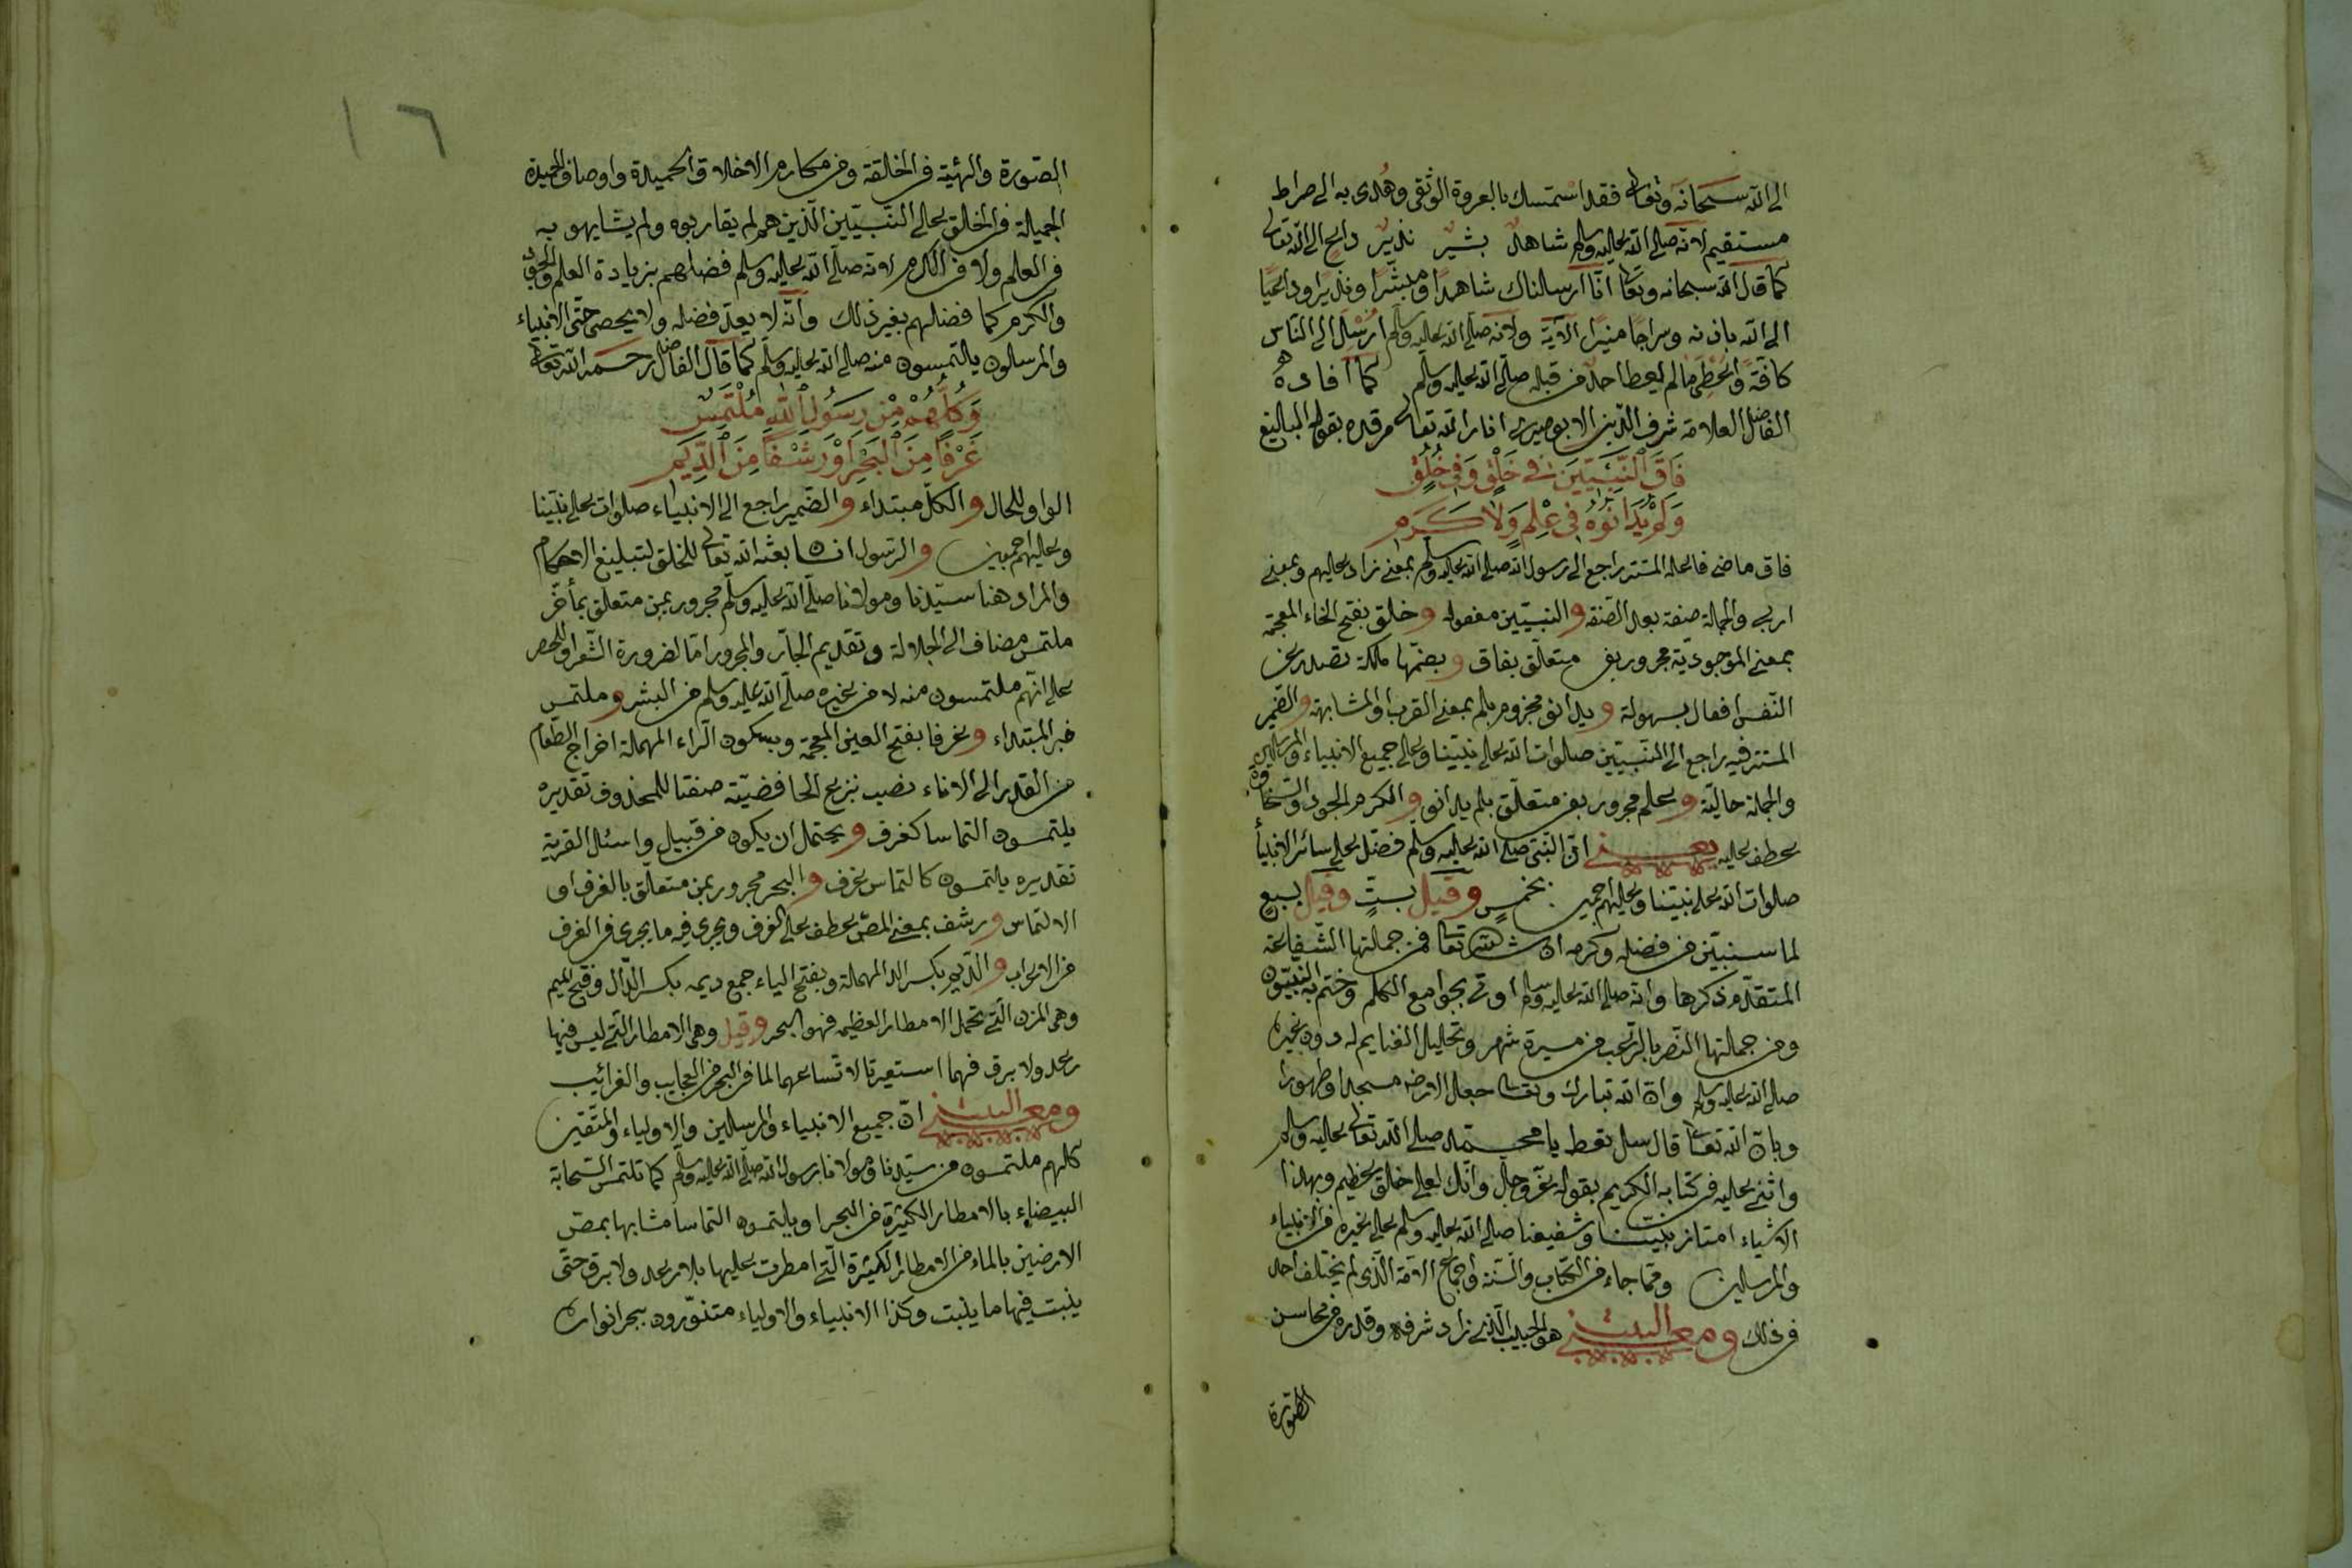 الى الله سبحانه وتعالى فقد استمسك بالعروة الوثقى وهدى به الى صراط
مستقيم لانه صلى الله عليه وسلم شاهد بشير نذير داعي الى الله تعالى
كما قال الله سبحانه وتعالى انا ارسلناك شاهدا ومبشرا ونذيرا وداعيا
الى الله باذنه وسراجا منيرا الآية ولانه صلى الله عليه وسلم ارسل الى الناس
كافة واعطى ما لم يعط احد من قبله صلى الله عليه وسلم كما افاده
الفاضل العلامة شرف الدين الابوصيري انار الله تعالى مرقده بقوله البالغ
فَاقَ ٱلنَّبِيِّينَ فِي خَلْقٍ وَفِي خُلُقٍ
وَلَمْ يُدَانُوهُ فِي عِلْمٍ وَلَا كَرَمِ
فاق ماض فاعله المستتر راجع الى رسول الله صلى الله عليه وسلم بمعنى زاد عليهم وبمعنى
اربى والجملة صفة بعد الصفة والنبيين مفعوله وخلق بفتح الخاء المعجمة
بمعنى الموجودية مجرور بفي متعلق بفاق وبضمها ملكة تصدر عن
النفس افعال بسهولة ويدانو مجزوم بلم بمعنى القرب او المشابهة والضمير
المستتر فيه راجع الى النبيين صلوات الله على نبينا وعلى جميع الانبياء والمرسلين
والجملة حالية وعلم مجرور بفي متعلق بلم يدانو والكرم الجود والسخاوة
عطف عليه يعني ان النبي صلى الله عليه وسلم فضل على سائر الانبياء
صلوات الله على نبينا وعليهم اجمعين بخمس وقيل بست وقيل بسبع
لما سنبين من فضله وكرمه ان شاء الله تعالى فمن جملتها الشفاعة
المتقدم ذكرها وانه صلى الله عليه وسلم اوتى بجوامع الكلم وختم به النبيون
ومن جملتها النصر بالرعب من مسيرة شهر وتحليل الغنايم له دون غيره
صلى الله عليه وسلم وان الله تبارك وتعالى جعل الارض مسجدا وطهورا
وبان الله تعالى قال سل تعط يا محمد صلى الله تعالى عليه وسلم
واثنى عليه في كتابه الكريم بقوله عز وجل وانك لعلى خلق عظيم وبهذا
الاشياء امتاز نبينا وشفيعنا صلى الله عليه وسلم على غيره من الانبياء
والمرسلين ومما جاء في الكتاب والسنة واجماع الامة الذي لم يختلف احد
في ذلك ومع البيت هو الحبيب الذي زاد شرفه وقدره في محاسن
الصورة
١٦
الصورة والهيئة في الخالقة وفي مكارم الاخلاق الحميدة واوصاف الحميدة
الجميلة في الخلق على النبيين الذين هم لم يقاربوه ولم يشابهو به
في العلم ولا في الكرم لانه صلى الله عليه وسلم فضلهم بزيادة العلم والجود
والكرم كما فضلهم بغير ذلك وانه لا يعد فضله ولا يحصى حتى الانبياء
والمرسلون يلتمسون منه صلى الله عليه وسلم كما قال الفاضل رحمه الله تعالى
وَكُلُّهُمْ مِنْ رَسُولِ ٱللهِ مُلْتَمِسٌ
غَرْفًا مِنَ ٱلْبَحْرِ اَوْ رَشْفًا مِنَ ٱلدِّيَمِ
الواو للحال والكل مبتداء والضمير راجع الى الانبياء صلوات على نبينا
وعليهم اجمعين والرسول انسان بعثه الله تعالى للخلق لتبليغ الاحكام
والمراد هنا سيدنا ومولانا صلى الله عليه وسلم مجرور بمن متعلق بمأخر
ملتمس مضاف الى الجلالة وتقديم الجار والمجرور اما لضرورة الشعر او للحصر
على انهم ملتمسون منه لا من غيره صلى الله عليه وسلم من البشر وملتمس
خبر المبتداء وغرفا بفتح الغين المعجمة وبسكون الراء المهملة اخراج الطعام
من القدر الى الاناء نصب بنزع الخافضية صفتا للمحذوف تقديره
يلتمسون التماسا كغرف ويحتمل ان يكون من قبيل واسئل القرية
تقديره يلتمسون كالتماس غرف والبحر مجرور بمن متعلق بالغرف او
الالتماس ورشف بمعنى المص عطف على الغرف ويجرى فيه ما يجرى في الغرف
من الاعراب والديم بكسر الدال المهملة وبفتح الياء جمع ديمه بكسر الدال وفتح الميم
وهى المزن التي تحمل الامطار العظيمة فهو البحر وقيل وهى الامطار التي ليس فيها
رعد ولا برق فهما استعيرتا لاتساعهما لما في البحر من العجايب والغرائب
ومع البيت ان جميع الانبياء والمرسلين والاولياء والمتقين
كلهم ملتمسون من سيدنا ومولانا رسول الله صلى الله عليه وسلم كما تلتمس السحابة
البيضاء بالامطار الكثيرة من البحر او يلتمسون التماسا مشابها بمص
الارضين بالماء من الامطار الكثيرة التي امطرت عليها بلا رعد ولا برق حتى
ينبت فيها ما ينبت وكذا الانبياء والاولياء متنورون ببحر انواره